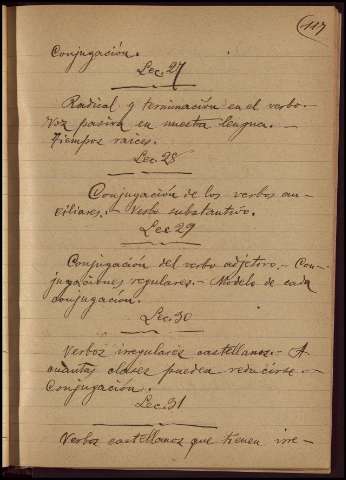 117
Conjugación.
Lec. 27
Radical y terminación en el verbo.-
Voz pasiva en nuestra lengua.-
Tiempos raices.
Lec. 28
Conjugación de los verbos au-
xiliares.- Verbo substantivo.
Lec 29
Conjugación del verbo adjetivo.- Con-
jugaciones regulares.- Modelo de cada
conjugación.
Lec. 30
Verbos irregulares castellanos.- A
cuántas clases pueden reducirse.-
Conjugación.
Lec. 31
Verbos castellanos que tienen irre-